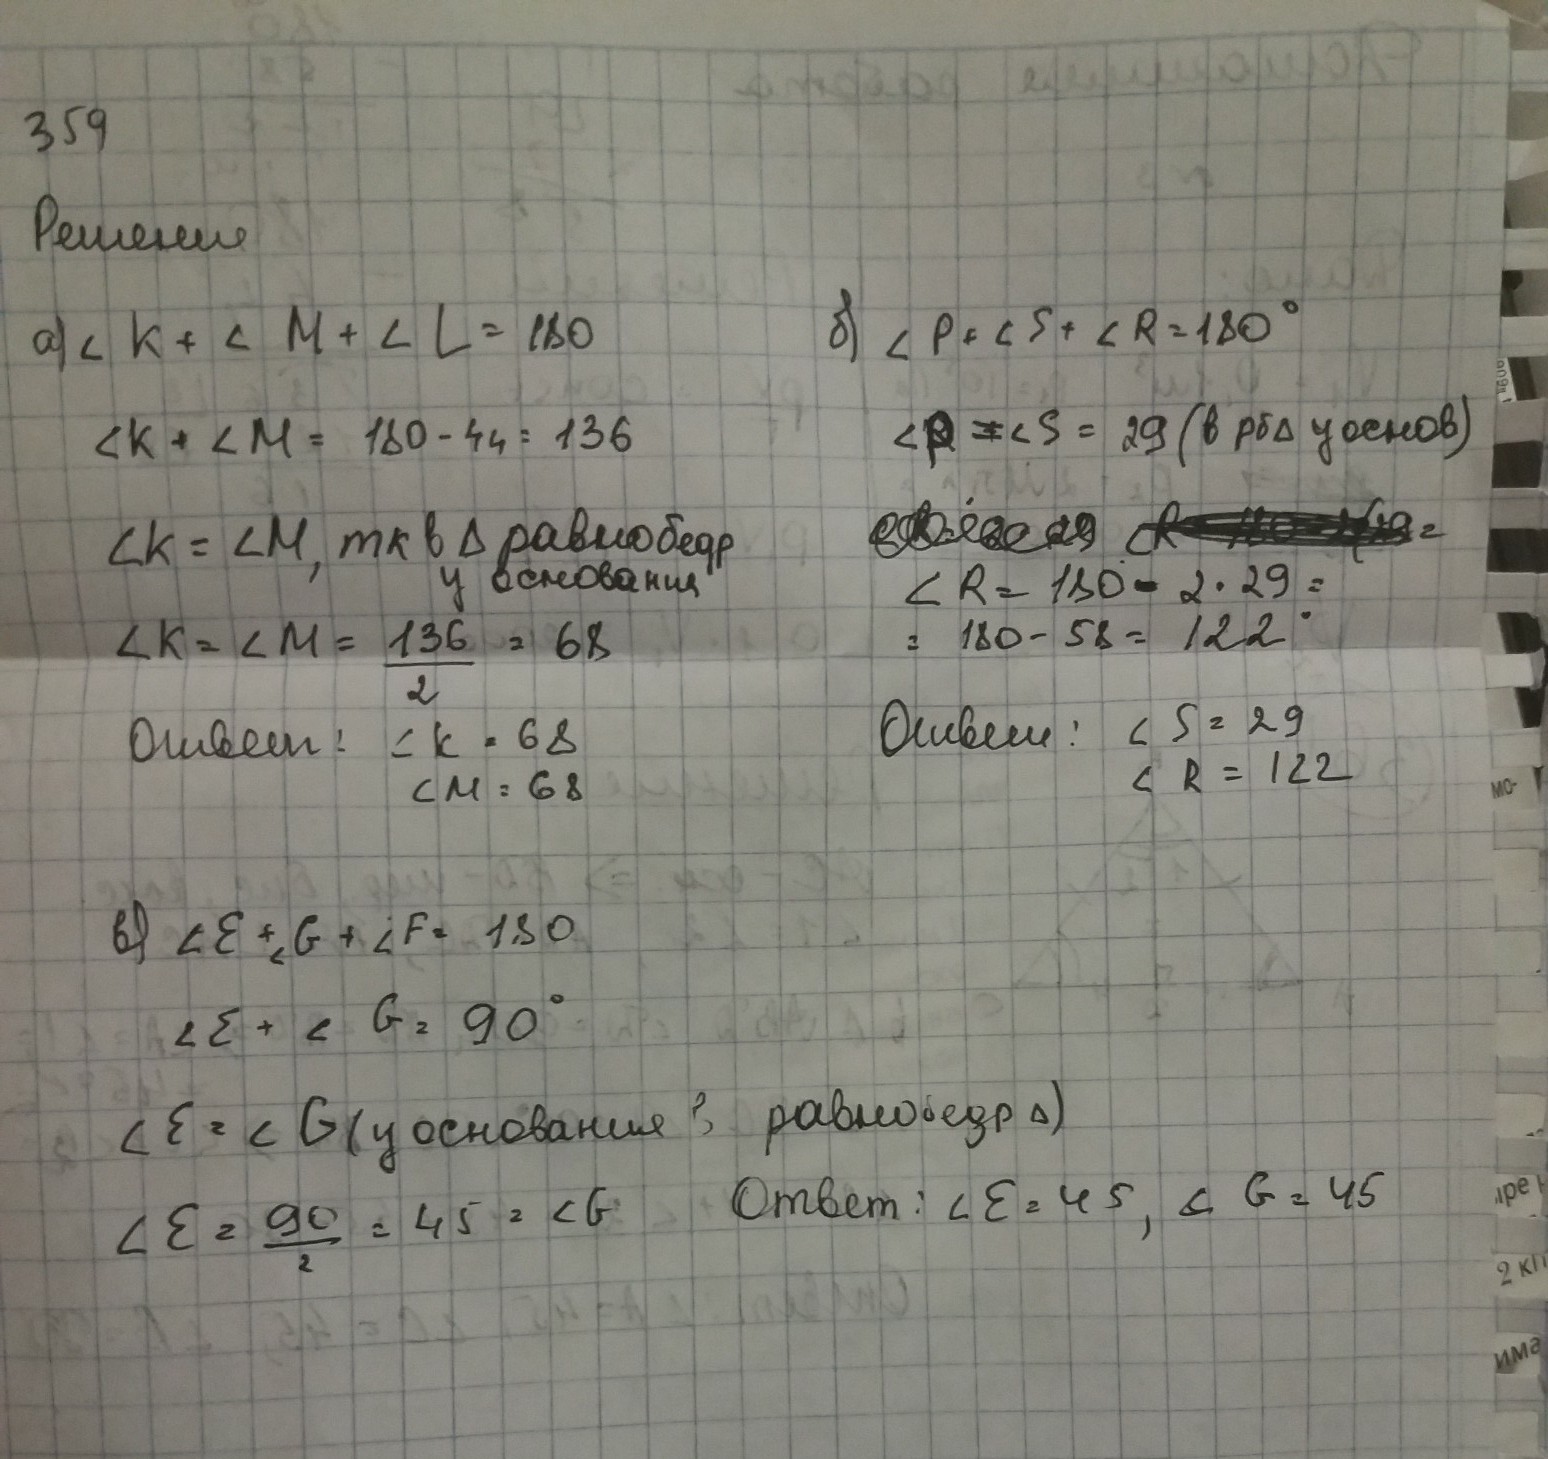 359
Решение
а) ∠K + ∠M + ∠L = 180
∠K + ∠M = 180 - 44 = 136
∠K = ∠M, тк в Δ равнобедр
у основания
∠K = ∠M = 136/2 = 68
Ответ: ∠K = 68
∠M = 68
б) ∠P + ∠S + ∠R = 180°
∠P = ∠S = 29 (в рб Δ у основ)
∠R =
∠R = 180 - 2·29 =
= 180 - 58 = 122°
Ответ: ∠S = 29
∠R = 122
в) ∠E + ∠G + ∠F = 180
∠E + ∠G = 90°
∠E = ∠G (у основания в равнобедр Δ)
∠E = 90/2 = 45 = ∠G
Ответ: ∠E = 45, ∠G = 45
мо-
2 кл
има